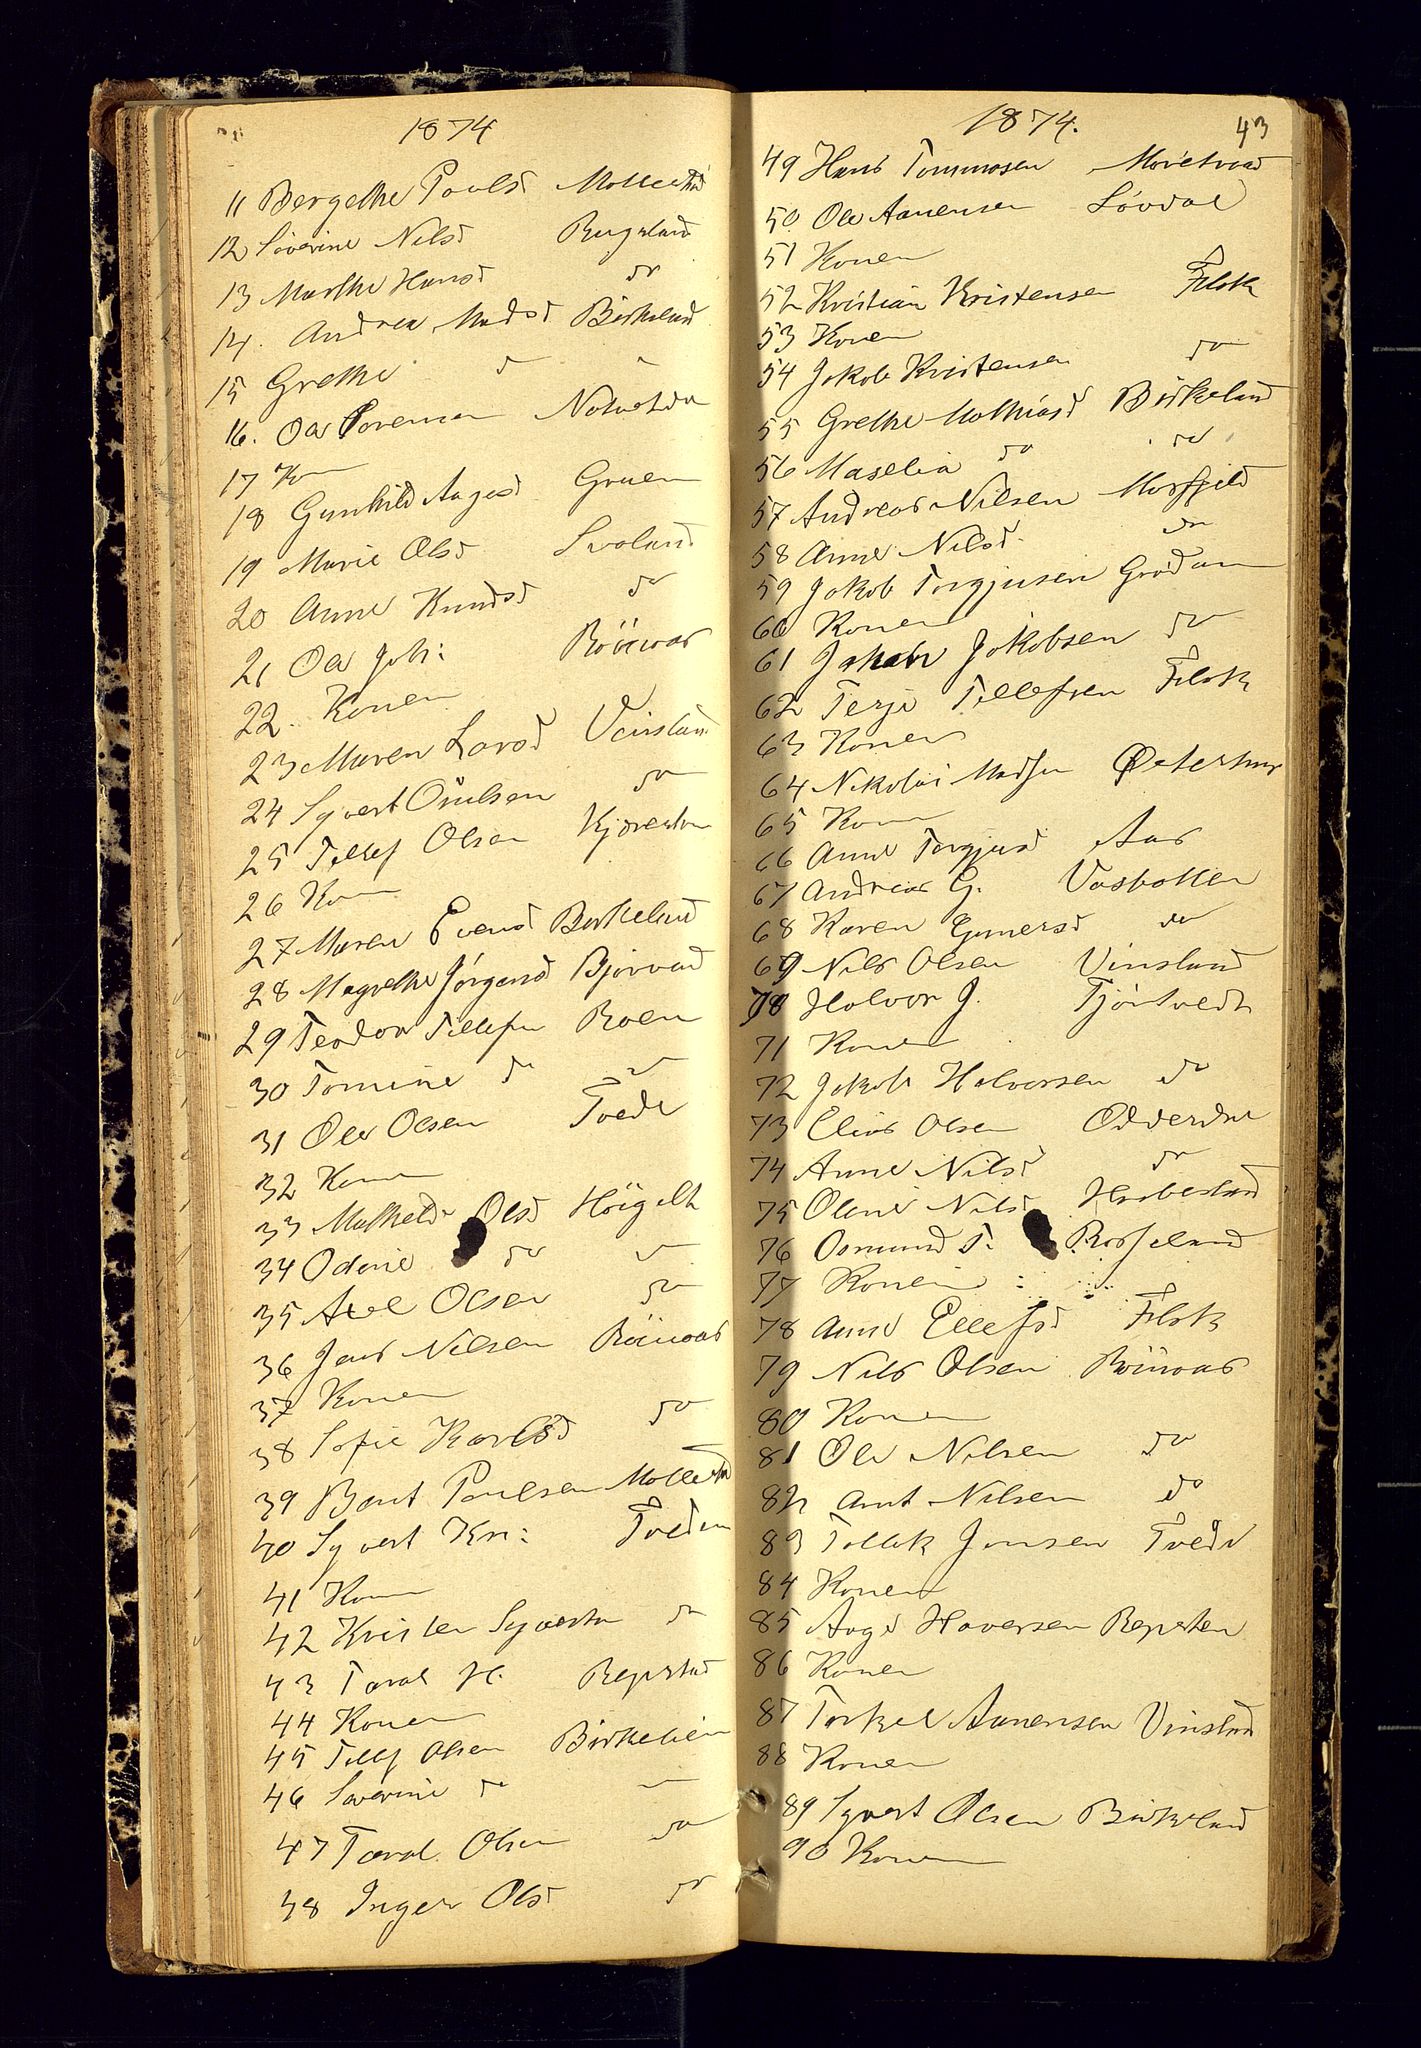 1874
11 Bergethe Pouls d Mollestad
12 Søverine Nils d Bugeland
13 Marthe Hans d do
14. Andrea Mads d Birkeland
15 Grethe d
16. Ole Sorensen
17 K
18 Gunhild Aages d Gruen
19 Marie Ols d Svaland
20 Anne Knuds d do
21 Ole Joh: Röinaas
22. Konen
23 Maren Lars d Veinsland
24 Syvert Omlsen do
25 Tellef Olsen
26 Kon
27 Maren Evens d Berkeland
28 Magrethe Jörgens d Bjorvad
29 Teodor Tellefsen Roen
30 Tomine do
31 Ole Olsen Tvede
32 Kon
33 Mathelde Ols d Höigelt
34 Odine do
35 Axel Olsen do
36 Jens Nilsen Röinaas
37 Konen
38 Sofie Karls d do
39 Bent Poulsen Mollestad
40 Syvert Kri: Tveden
41 Kon
42 Kristen Syverten do
43 Taral H. Repstad
44 Konen
45 Tellef Olsen Birkelien
46 Severine do
47 Taral Olsen do
48 Inger Ols d do
1874. 43
49 Hans Tommasen Moretvad
50. Ole Aanensen Lövdal
51 Konen
52 Kristian Kristensen Felsk
53 Konen
54 Jokob Kristensen do
55 Grethe Mathias d Birkeland
56 Maselia do do
57 Andreas Nilsen Morfjeld
58 Anne Nils d do
59 Jokob Torgjusen Grødum
60 Konen
61 Jokob Jokobsen do
62 Terje Tellefsen Felsk
63 Konen
64 Nikolai Madsen Østerhus
65 Kon
66 Anne Torgjus d Aas
67 Andreas G. Vasbotten
68 Karen Guners d do
69 Nils Olsen Vinsland
70 Halvor J. Tjörtvedt
71 Konen
72 Jokob Halvorsen do
73 Elias Olsen Odderdne
74 Anne Nils d do
75 Oline Nils d Hrabesland
76 Osmund T. Rosseland
77 Konen
78 Anne Ellefs d Felsk
79 Nils Olsen Röinaas
80 Konen
81 Ole Nilsen do
82 Arnt Nilsen do
83 Tollek Jensen Tvede
84 Konen
85 Aage Haversen Repsten
86 Konen
87 Torkel Aanensen Vinsland
88 Konen
89 Syvert Olsen Birkeland
90 Konen